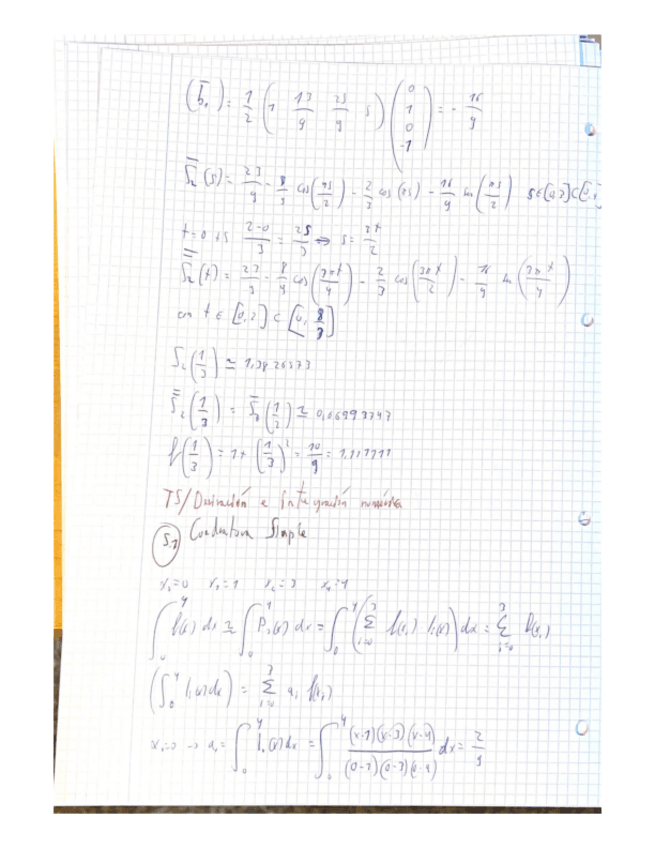 (b̄₁) = 1/2 (1 13/9 25/9 5) (0 1 0 -1) = - 16/9
S̄₂(s) = 23/9 - 8/9 cos(πs/2) - 2/3 cos(πs) - 16/9 sen(πs/2) s∈[0,2]⊂[0,
t=0+s 2-0/3 = 2s/3 ⇒ s= 3t/2
S̿₂(t) = 23/9 - 8/9 cos(3πt/4) - 2/3 cos(3πt/2) - 16/9 sen(3πt/4)
con t ∈ [0,2] ⊂ [0, 8/3]
S₂(1/3) ≃
S̿₂(1/3) = S̄₂(1/2) ≃
f(1/3) = 1+(1/3)² = 10/9 = 1,11111
T5/Derivación e integración numérica
5.1 Cuadratura Simple
x₀=0 x₁=1 x₂=3 x₃=4
∫₀⁴ f(x) dx ≃ ∫₀⁴ P₃(x) dx = ∫₀⁴ (Σᵢ₌₀³ f(xᵢ) lᵢ(x)) dx = Σᵢ₌₀³ f(xᵢ)
(∫₀⁴ lᵢ(x)dx) = Σᵢ₌₀³ aᵢ f(xᵢ)
x₀=0 → a₀ = ∫₀⁴ l₀(x)dx = ∫₀⁴ (x-1)(x-3)(x-4)/(0-1)(0-3)(0-4) dx = 2/9